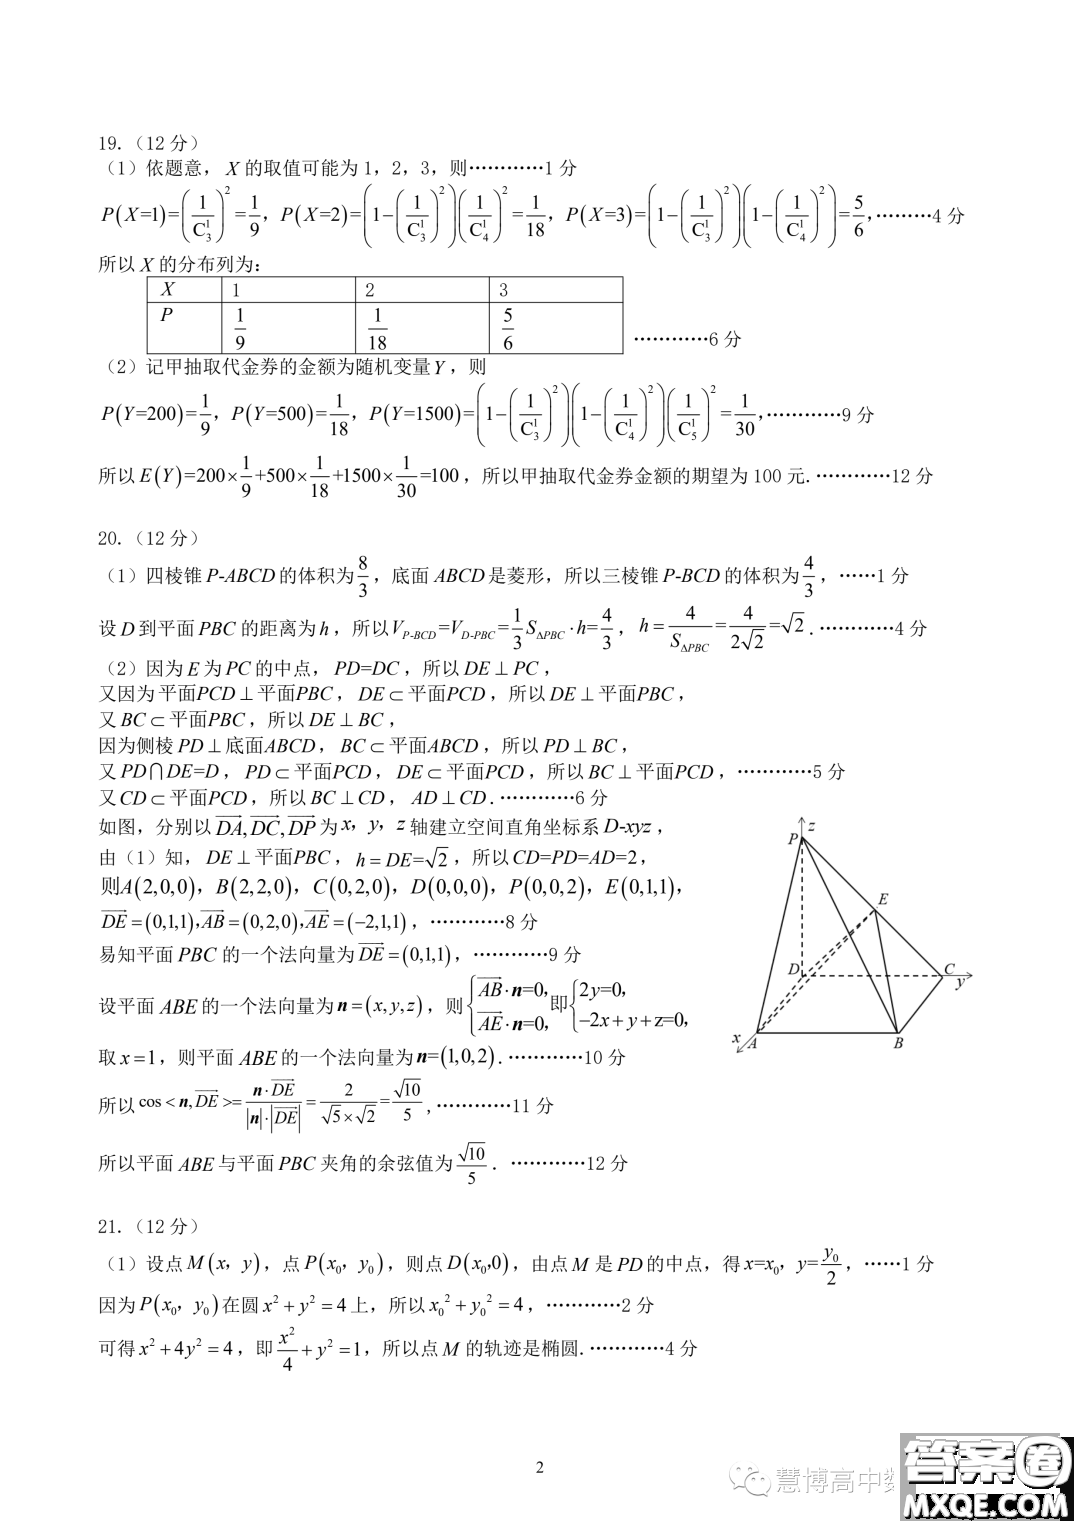 19.（12 分）
（1）依题意， X 的取值可能为 1，2，3，则…………1 分
P(X=1)=(1/C₃¹)²=1/9，P(X=2)=(1−(1/C₃¹)²)(1/C₄¹)²=1/18，P(X=3)=(1−(1/C₃¹)²)(1−(1/C₄¹)²)=5/6，………4 分
所以 X 的分布列为：
X 1 2 3
P 1/9 1/18 5/6 …………6 分
（2）记甲抽取代金券的金额为随机变量 Y，则
P(Y=200)=1/9，P(Y=500)=1/18，P(Y=1500)=(1−(1/C₃¹)²)(1−(1/C₄¹)²)(1/C₅¹)²=1/30，…………9 分
所以 E(Y)=200×1/9+500×1/18+1500×1/30=100，所以甲抽取代金券金额的期望为 100 元.…………12 分
20.（12 分）
（1）四棱锥 P-ABCD 的体积为8/3，底面 ABCD 是菱形，所以三棱锥 P-BCD 的体积为4/3，……1 分
设 D 到平面 PBC 的距离为 h，所以 V_{P-BCD}=V_{D-PBC}=1/3 S_{△PBC}·h=4/3，h=4/S_{△PBC}=4/(2√2)=√2.…………4 分
（2）因为 E 为 PC 的中点，PD=DC，所以 DE⊥PC，
又因为平面PCD⊥平面PBC，DE⊂平面PCD，所以 DE⊥平面PBC，
又 BC⊂平面PBC，所以 DE⊥BC，
因为侧棱 PD⊥底面ABCD，BC⊂平面ABCD，所以 PD⊥BC，
又 PD∩DE=D，PD⊂平面PCD，DE⊂平面PCD，所以 BC⊥平面PCD，…………5 分
又 CD⊂平面PCD，所以 BC⊥CD，AD⊥CD.…………6 分
如图，分别以 →DA,→DC,→DP 为 x，y，z 轴建立空间直角坐标系 D-xyz，
由（1）知，DE⊥平面PBC，h=DE=√2，所以 CD=PD=AD=2，
则A(2,0,0)，B(2,2,0)，C(0,2,0)，D(0,0,0)，P(0,0,2)，E(0,1,1)，
→DE=(0,1,1),→AB=(0,2,0),→AE=(−2,1,1)，…………8 分
易知平面 PBC 的一个法向量为 →DE=(0,1,1)，…………9 分
设平面 ABE 的一个法向量为 n=(x,y,z)，则{→AB·n=0，→AE·n=0，即{2y=0，−2x+y+z=0，
取 x=1，则平面 ABE 的一个法向量为 n=(1,0,2).…………10 分
所以 cos<n,→DE>=n·→DE/(|n|·|→DE|)=2/(√5×√2)=√10/5,…………11 分
所以平面 ABE 与平面 PBC 夹角的余弦值为√10/5．…………12 分
P z E D C y x A B
21.（12 分）
（1）设点 M(x，y)，点 P(x₀，y₀)，则点 D(x₀,0)，由点 M 是 PD 的中点，得 x=x₀，y=y₀/2，……1 分
因为 P(x₀，y₀)在圆 x²+y²=4 上，所以 x₀²+y₀²=4，…………2 分
可得 x²+4y²=4，即 x²/4+y²=1，所以点 M 的轨迹是椭圆.…………4 分
2
慧博高中数
答案圈
MXQE.COM